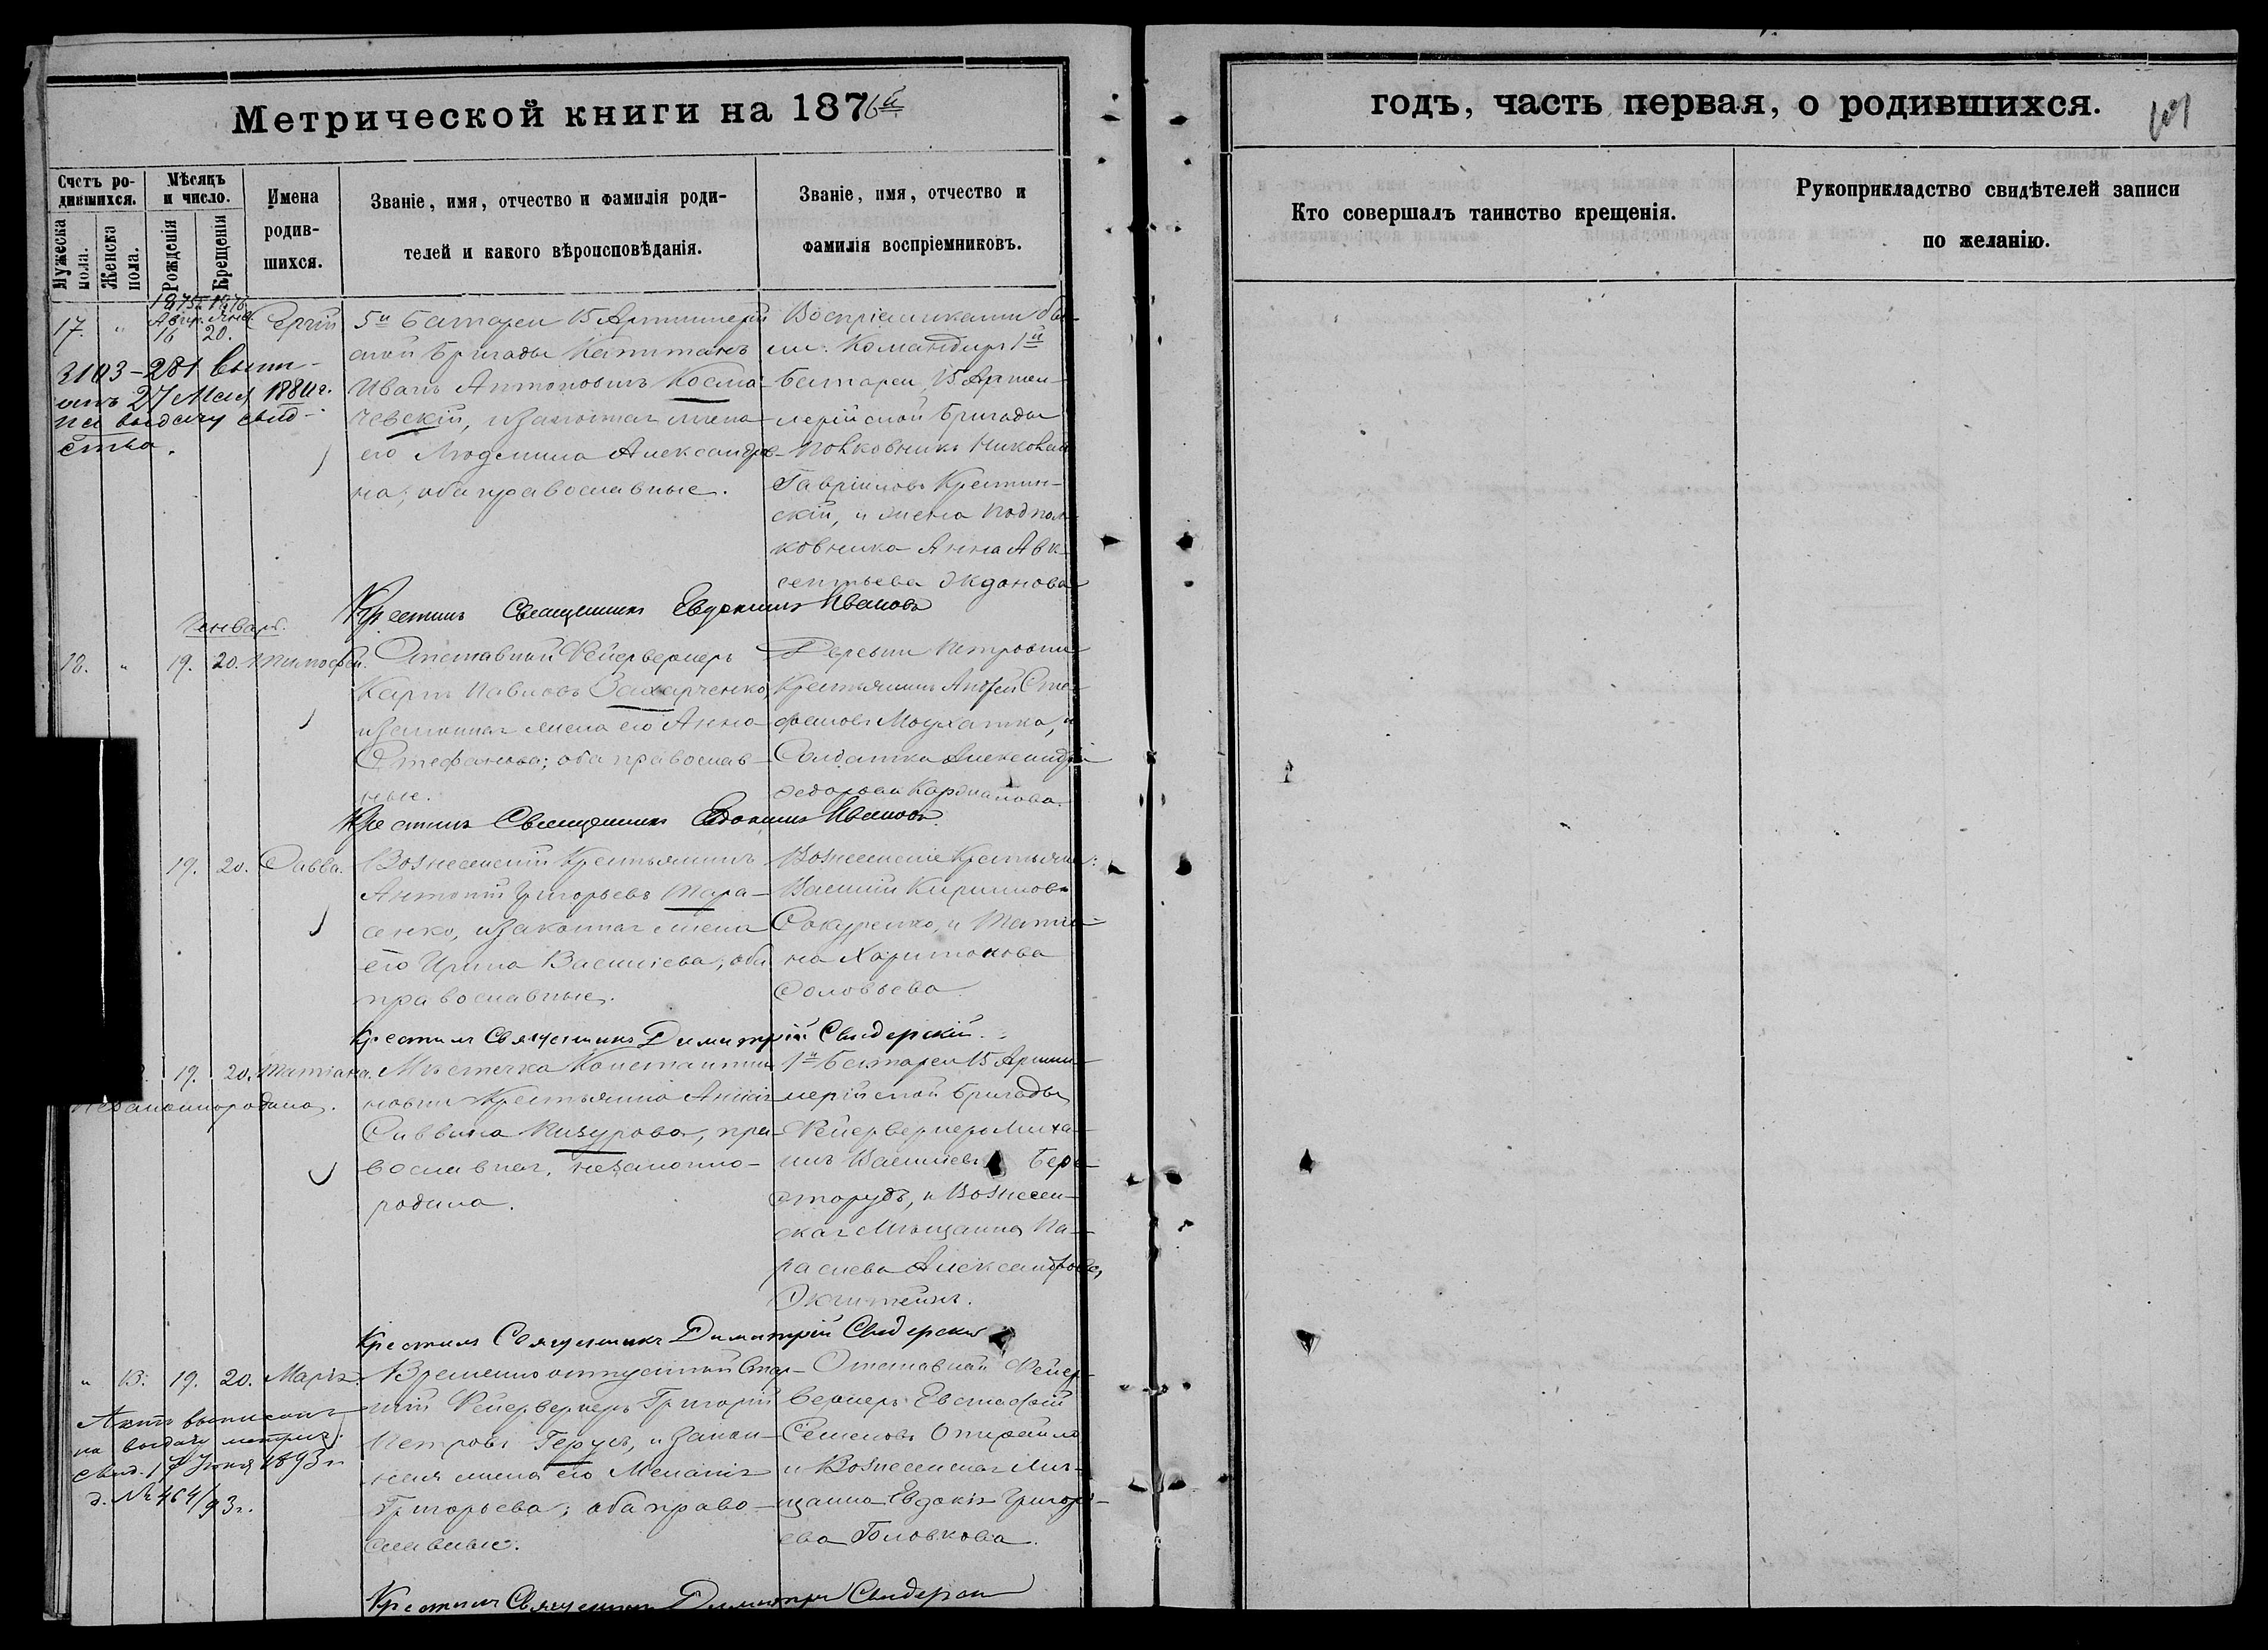 Метрической книги на 1876й
годъ, часть первая, о родившихся.
Счетъ ро-
дившихся.
Мѣсяцъ
и число.
Имена
родив-
шихся.
Званіе, имя, отчество и фамилія роди-
телей и какого вѣроисповѣданія.
Званіе, имя, отчество и
фамилія воспріемниковъ.
Кто совершалъ таинство крещенія.
Рукоприкладство свидѣтелей записи
по желанію.
Мужеска
пола.
Женска
пола.
Рожденія
Крещенія
1875 1876
17. " Авг. 16 Янв. 20. Сергій
3103-281 Выпи-
анъ 27 Мая 1884г.
на выдачу свид-
ства.
5й Батареи 15 Артиллерій
ской Бригады Капитанъ
Иванъ Антоновичъ Косма-
чевскій, и законная жена
его Людмила Александро-
на; оба православные.
Воспріемниками бы-
ли: Командиръ 1й
Батареи, 15 Артил-
лерійской Бригады
Полковникъ Николай
Гавріиловъ Крестин-
скій, и жена Подпол-
ковника Анна Авк-
сентьева Жданова
Крестилъ Священникъ Евдокимъ Ивановъ
Январь.
18. " 19. 20. Тимофей.
Отставной Фейерверкеръ
Карпъ Павловъ Захарченко,
и законная жена его Анна
Стефанова; оба православ-
ные.
Деревни Петровки
Крестьянинъ Андрей Сте-
фановъ и
Солдатка Александра
Федорова
Крестилъ Священникъ Евдокимъ Ивановъ.
19. 20. Савва.
Вознесенскій Крестьянинъ
Антоній Григорьевъ Тара-
сенко, и законная жена
его Ирина Василіева; оба
православные.
Вознесенскіе Крестьяне:
Василій Кирилловъ
Сокуренко, и Татіа-
на Харитонова
Соловьева.
Крестилъ Священникъ Димитрій Свидерскій.
19. 20. Татіана.
Незаконнорождена.
Мѣстечка Константи-
новки Крестьянка Аннa
Саввина Пизурова, пра-
вославная, незаконно-
родила.
1й Батареи 15 Артил-
лерійской Бригады
Фейерверкеръ Миха-
илъ Василіевъ Бере-
сторудъ, и Вознесен-
ская Мѣщанка Па-
раскева Александрова,
Крестилъ Священникъ Димитрій Свидерскій
" 13. 19. 20. Марія.
Актъ выписанъ
на выдачу метрич.
свид. 17 Іюня 1893 г.
д. № 464/93г.
Временно отпускной Стар-
шій Фейерверкеръ Григорій
Петровъ Герусъ, и закон-
ная жена его Меланія
Григорьева; оба право-
славные.
Отставной Фейер-
веркеръ Евстафій
Семеновъ
и Вознесенская Мѣ-
щанка Евдокія Григорі-
ева Головкова.
Крестилъ Священникъ Димитрій Свидерскій